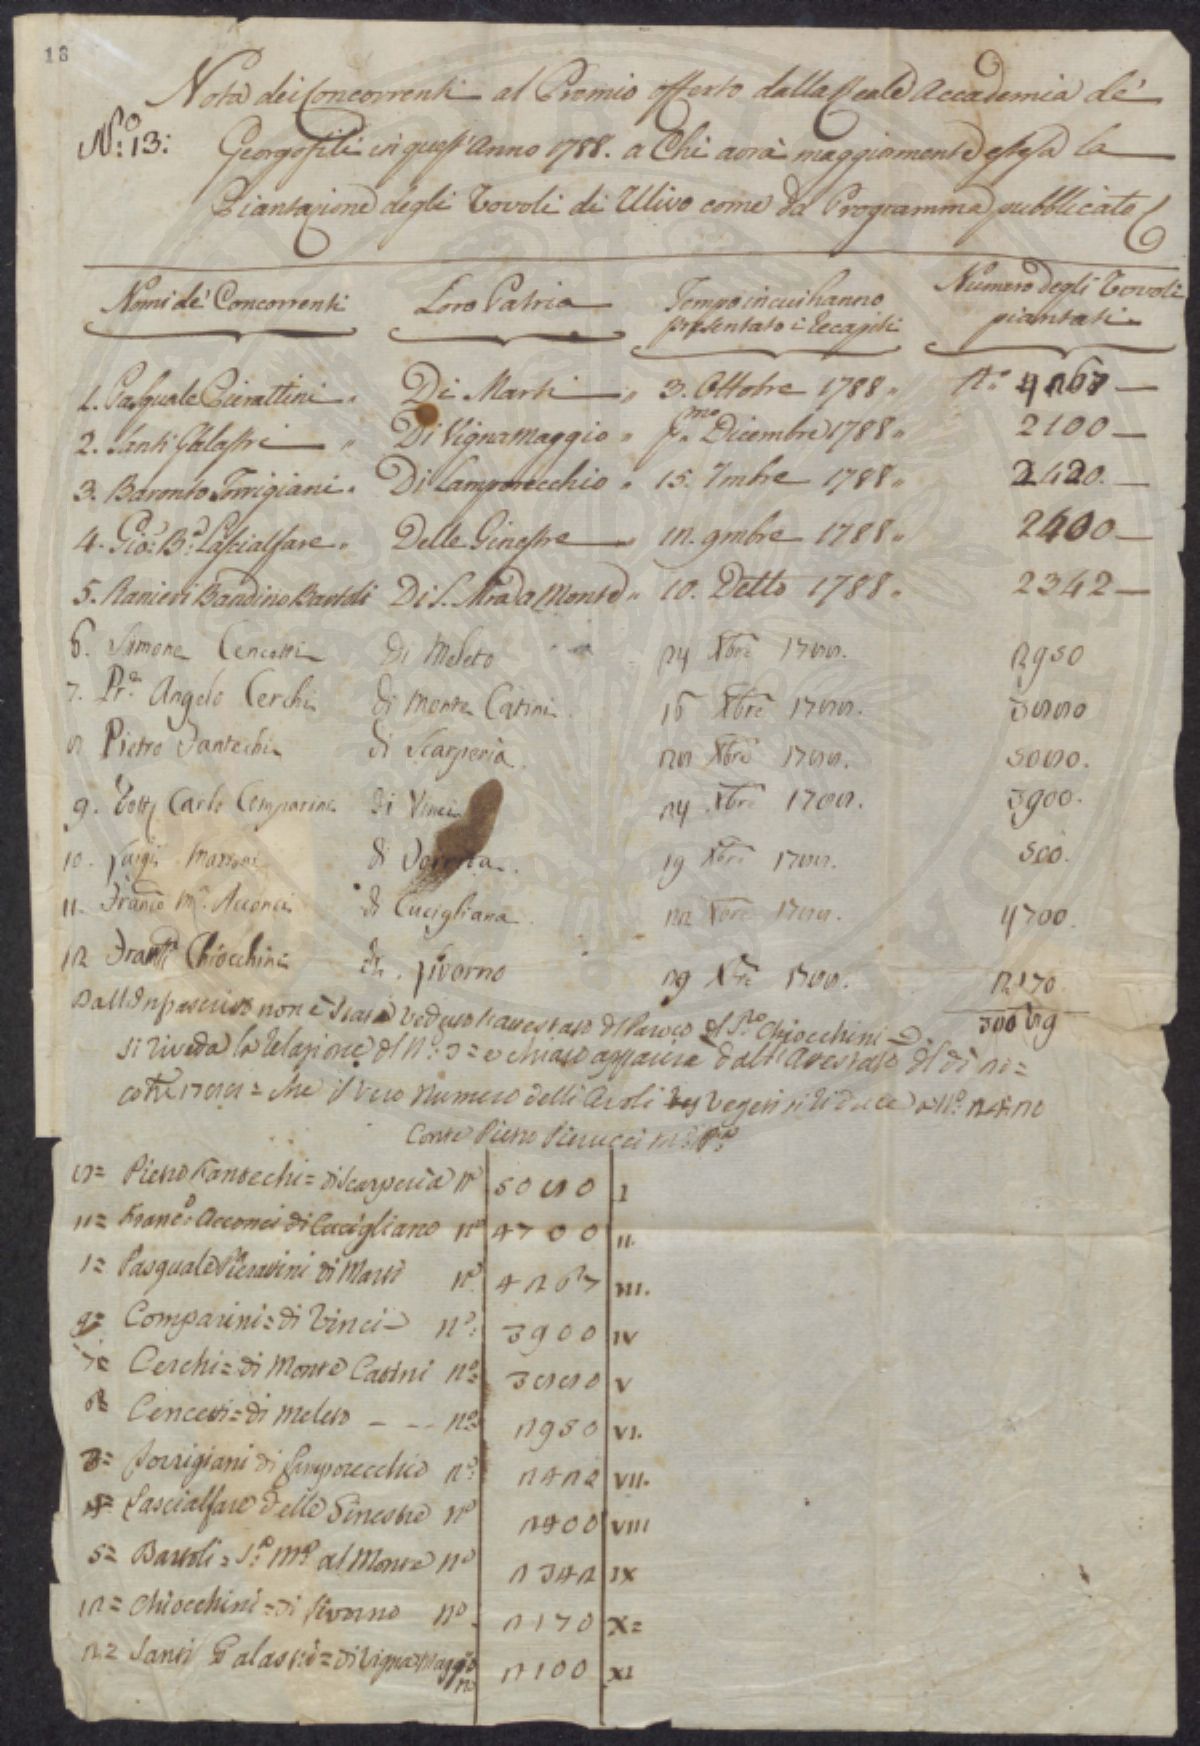 18
Nota dei Concorrenti al Premio offerto dalla Reale Accademia de'
N.o 13: Georgofili in quest'Anno 1788. a Chi avrà maggiormente estesa la
Piantazione degli Vovoli di Ulivo come da Programma pubblicato
Nomi de' Concorrenti Loro Patria Tempo in cui hanno presentato i Recapiti Numero degli Vovoli piantati
1. Pasquale Pierattini Di Marti 3. Ottobre 1788 N.o 4267
2. Santi Galastri Di Vignamaggio p.mo Dicembre 1788 2100
3. Baronto Torrigiani Di Lamporecchio 15. 7mbre 1788 2420.
4. Gio: B.a Lascialfare Delle Ginestre 12. 9mbre 1788 2400
5. Ranieri Bandino Bartoli Di S. Mra a Monte 10. Detto 1788 2342
6. Simone Cencetti di Meleto 24 Xbre 1788. 2950
7. Pr.e Angelo Cerchi di Monte Catini 16 Xbre 1788. 3880
8 Pietro Fantechi di Scarperia. 28 Xbre 1788. 5080.
9. Dott. Carlo Comparini di Vinci 24 Xbre 1788. 3900.
10. Luigi Massoni di 19 Xbre 1788. 500.
11. Franco M.a Acconci di Cucigliana. 22 Xbre 1788. 4700.
12 Chiocchini di Livorno 29 Xbre 1788. 2170.
non è stato veduto l'attestato del Paroco del S.re Chiocchini 
si riveda la Relazione del N.o 3 = e chiaro apparirà dall'Attestato del dì 12 =
1788 = che il vero numero delli Uvoli vegeti si riduce a N.o 2412
Conte Pietro Pierucci
8= Pietro Fantechi = di Scarperia N.o 5080 I
11= Franc.o Acconci di Cucigliano N.o 4700 II.
1= Pasquale Pieratini di Marti N.o 4267 III.
9= Comparini = di Vinci N.o 3900 IV
7= Cerchi = di Monte Catini N.o 3880 V
6= Cencetti = di Meleto - - - N.o 2950 VI.
3= Torrigiani di Lamporecchio N.o 2412 VII.
4= Lascialfare delle Ginestre N.o 2400 VIII
5= Bartoli = S.a M.a al Monte N.o 2342 IX
12= Chiocchini = di Livorno N.o 2170 X=
2= Santi Galastri = di Vignamaggio N.o 2100 XI